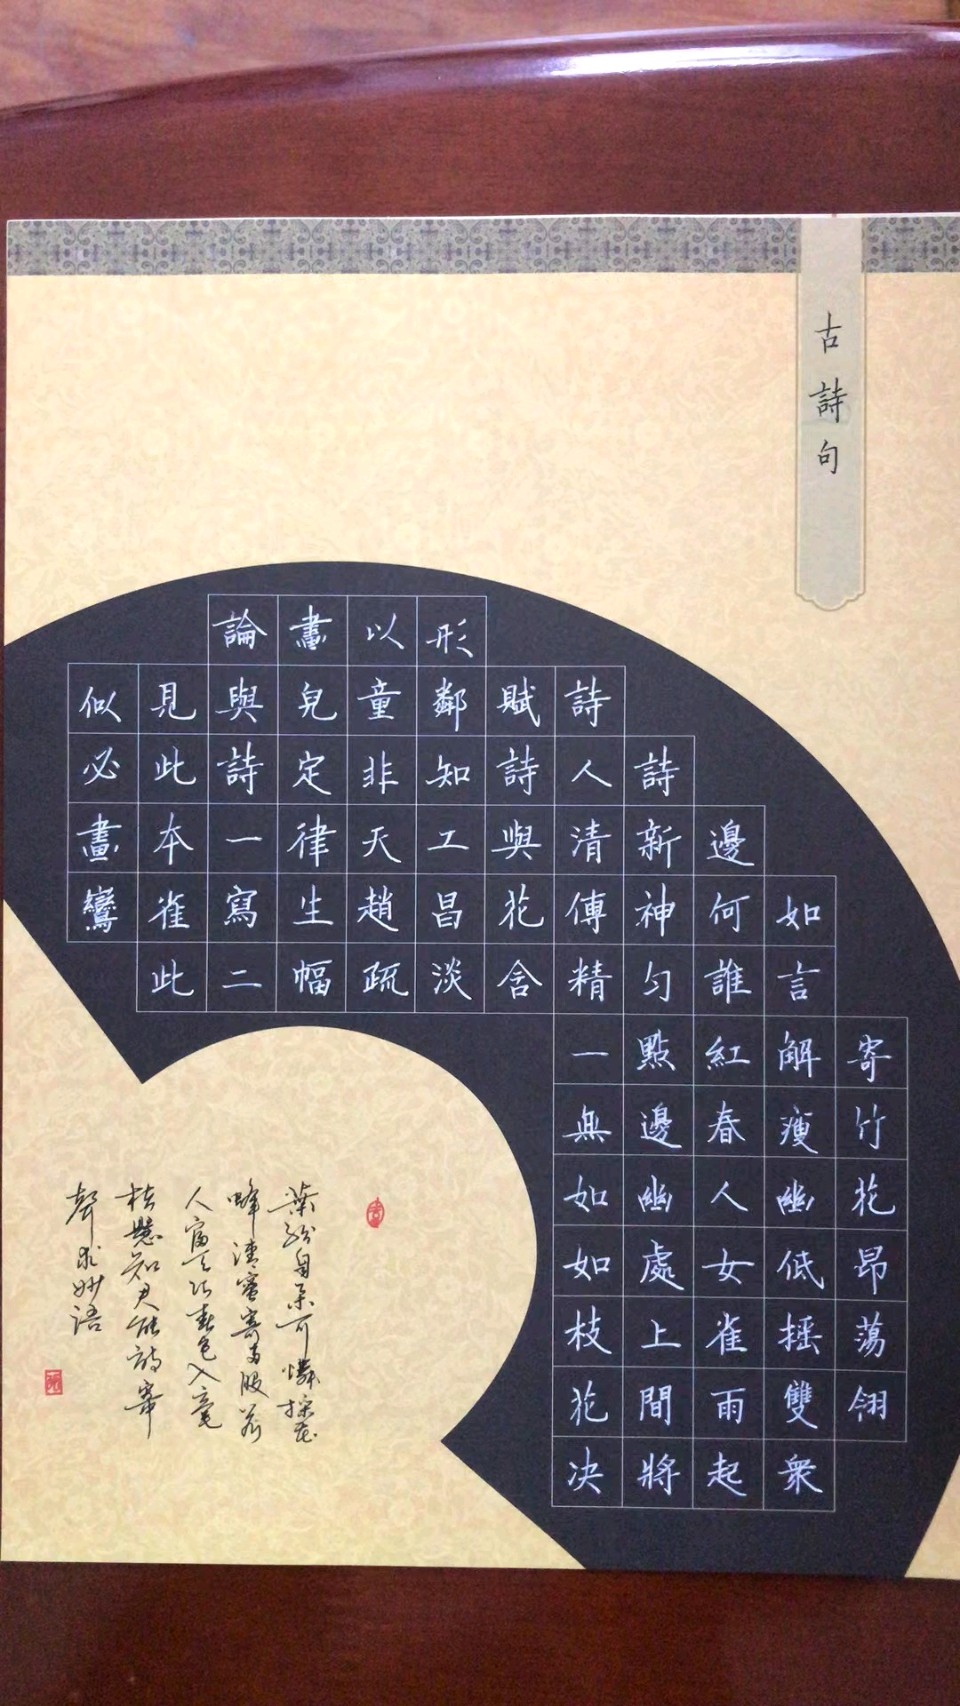 古詩句
論畫以形
似見與兒童鄰賦詩
必此詩定非知詩人詩
畫本一律天工與清新邊
鸞雀寫生趙昌花傳神何如
此二幅疏淡含精匀誰言
一點紅解寄
無邊春瘦竹
如幽人幽花
如處女低昂
枝上雀搖蕩
花間雨雙翎
决將起衆
葉紛自舉可憐採花
蜂清蜜寄兩股若
人富天巧春色入毫
楮懸知君能詩寄
聲求妙語